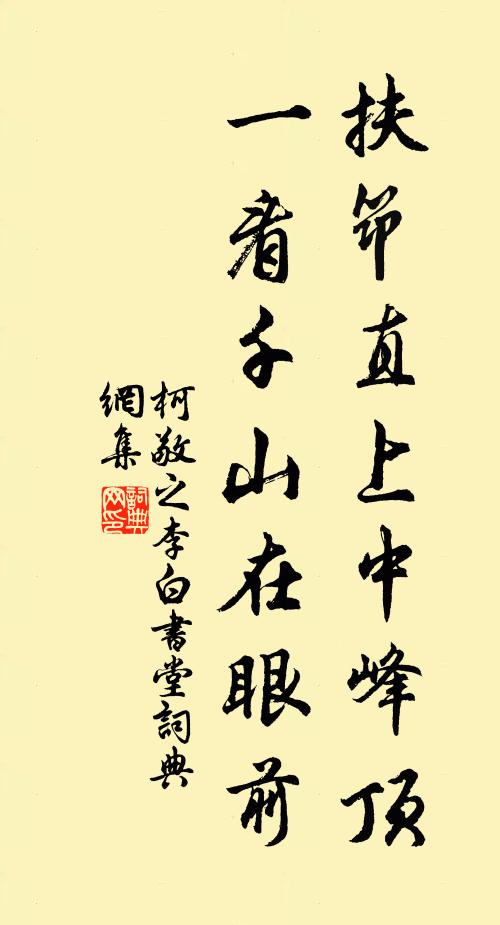 扶筇直上中峰頂
一看千山在眼前
柯敬之李白書堂詞典
網集
詞典
网印